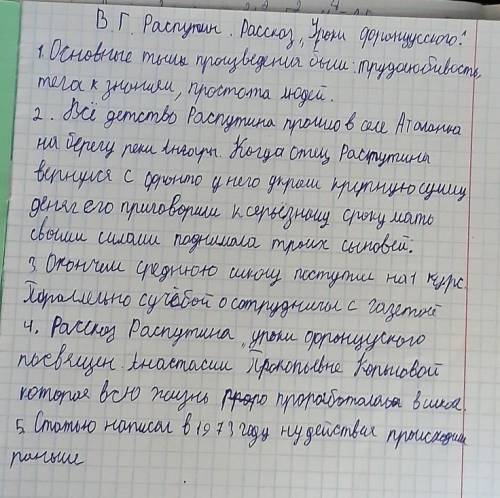 В. Г. Распутин. Рассказ „Уроки французского."
1. Основные темы произведения были: трудолюбивость,
тега к знаниям, простота людей.
2. Всё детство Распутина прошло в селе Аталанка
на берегу реки Ангары. Когда отец Распутина
вернулся с фронто у него украли крупную сумму
денег его приговорили к серьезному сроку мать
своими силами поднимала троих сыновей.
3. Окончил среднюю школу поступил на 1 курс.
Пораллельно с учёбой о сотрудничал с газетой
4. Рассказ Распутина „уроки французского
посвящен Анастасии Прокопьевне Копыловой
которая всю жизнь проработала в школе.
5. Статью написал в 1973 году ну действия происходили
раньше